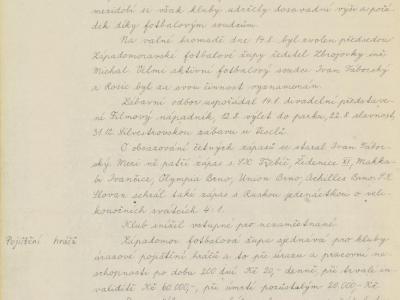 mezidobí se však kluby udržely dosavadní výši a pořá-
dek díky fotbalovým soudcům.
Na valné hromadě dne 14.2. byl zvolen předsedou
Západomoravské fotbalové župy ředitel Zbrojovky inž.
Michal. Velmi aktivní fotbalový soudce Ivan Táborský
z Rosic byl za svou činnost vyznamenán.
Zábavní odbor uspořádal 14.1. divadelní představe-
ní Filmový nápadník, 12.8. výlet do parku, 22.8. slavnost,
31.12. Silvestrovskou zábavu u Veselů.
O obsazování četných zápasů se staral Ivan Tábor-
ský. Mezi ně patří zápas s SK Třebíč, Židenice XI, Makka-
bi Ivančice, Olympia Brno, Union Brno, Achilles Brno. SK
Slovan sehrál také zápas s Ruskou jedenáctkou o veli-
konočních svátcích 4:1.
Klub snížil vstupné pro nezaměstnané.
Pojištění hráčů
Západomor. fotbalová župa sjednává pro kluby
úrazové pojištění hráčů a to při úrazu a pracovní ne-
schopnosti po dobu 200 dní Kč 20,- denně, při trvalé in-
validitě Kč 60.000,-, při úmrtí pozůstalým 20.000,- Kč.